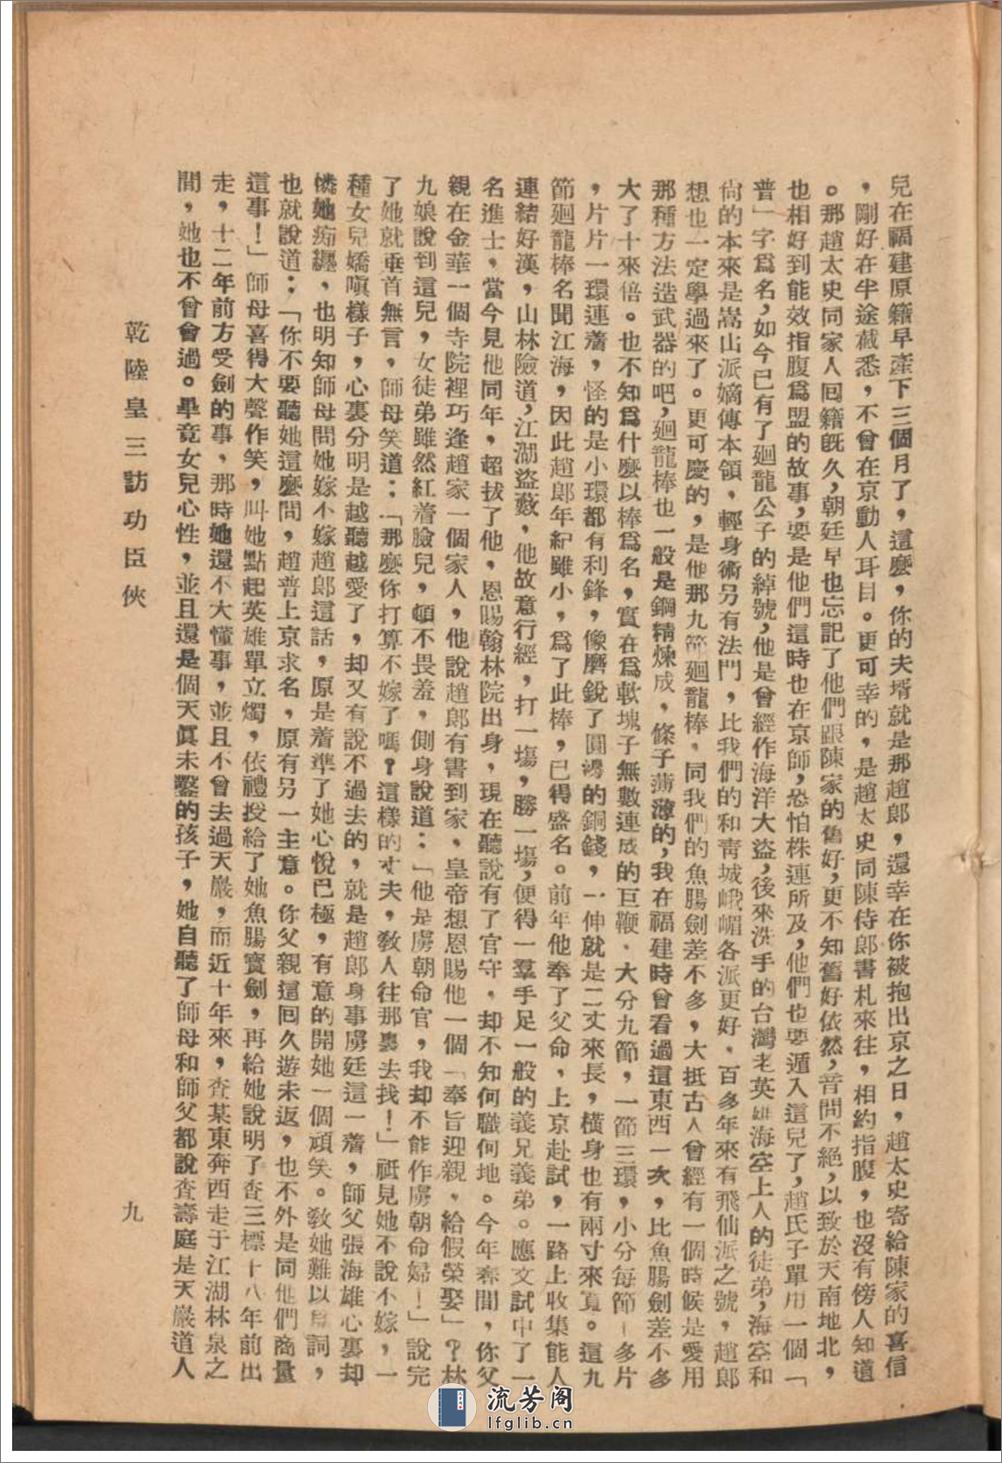 兒在福建原籍早產下三個月了，這麽，你的夫壻就是那趙郎，還幸在你被抱出京之日，趙太史寄給陳家的喜信
，剛好在半途截悉，不曾在京動人耳目。更可幸的，是趙太史同陳侍郎書札來往，相約指腹，也沒有傍人知道
。那趙太史同家人囘籍旣久，朝廷早也忘記了他們跟陳家的舊好，更不知舊好依然，音問不絕，以致於天南地北，
也相好到能效指腹爲盟的故事，要是他們這時也在京師，恐怕株連所及，他們也要遁入這兒了，趙氏子單用一個「
普」字爲名，如今已有了廻龍公子的綽號，他是曾經作海洋大盜，後來洗手的台灣老英雄海空上人的徒弟，海空和
尙的本來是嵩山派嫡傳本領，輕身術另有法門，比我們的和靑城峨嵋各派更好．百多年來有飛仙派之號，趙郎
想也一定學過來了。更可慶的，是他那九節廻龍棒．同我們的魚腸劍差不多，大抵古人曾經有一個時候是愛用
那種方法造武器的吧，廻龍棒也一般是鋼精煉成，條子薄薄的，我在福建時曾看過這東西一次，比魚腸劍差不多
大了十來倍。也不知爲什麽以棒爲名，實在爲軟塊子無數連成的巨鞭．大分九節，一節三環，小分每節一多片
，片片一環連着，怪的是小環都有利鋒，像磨銳了圓邊的銅錢，一伸就是二丈來長，橫身也有兩寸來寬。這九
節廻龍棒名聞江海，因此趙郎年紀雖小，爲了此棒，已得盛名。前年他奉了父命，上京赴試，一路上收集能人
連結好漢，山林險道，江湖盜藪，他故意行經，打一塲，勝一塲，便得一羣手足一般的義兄義弟。應文試中了一
名進士，當今見他同年，超拔了他，恩賜翰林院出身，現在聽說有了官守，却不知何職何地。今年春間，你父
親在金華一個寺院裡巧逢趙家一個家人，他說趙郎有書到家、皇帝想恩賜他一個「奉旨迎親，給假榮娶」？林
九娘說到這兒，女徒弟雖然紅着臉兒，頓不畏羞，側身說道：「他是虜朝命官，我却不能作虜朝命婦！」說完
了她就垂首無言，師母笑道：「那麽你打算不嫁了嗎？這樣的丈夫，敎人往那裏去找！」祇見她不說不嫁，一
種女兒嬌嗔樣子，心裏分明是越聽越愛了，却又有說不過去的，就是趙郎身事虜廷這一着，師父張海雄心裏却
憐她痴纏，也明知師母問她嫁不嫁趙郎這話，原是着準了她心悅已極，有意的開她一個頑笑。敎她難以爲詞，
也就說道：「你不要聽她這麽問，趙普上京求名，原有另一主意。你父親這囘久遊未返，也不外是同他們商量
這事！」師母喜得大聲作笑，叫她點起英雄單立燭，依禮授給了她魚腸寶劍，再給她說明了查三標十八年前出
走，十二年前方受劍的事，那時她還不大懂事，並且不曾去過天巖，而近十年來，查某東奔西走于江湖林泉之
間，她也不曾會過。畢竟女兒心性，並且還是個天眞未鑿的孩子，她自聽了師母和師父都說查壽庭是天巖道人
乾陸皇三訪功臣俠
九
流芳阁
lfglib.cn